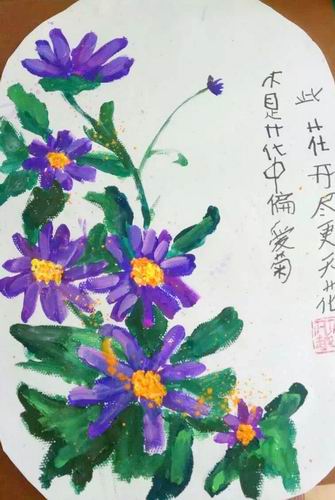 不是花中偏爱菊
此花开尽更无花